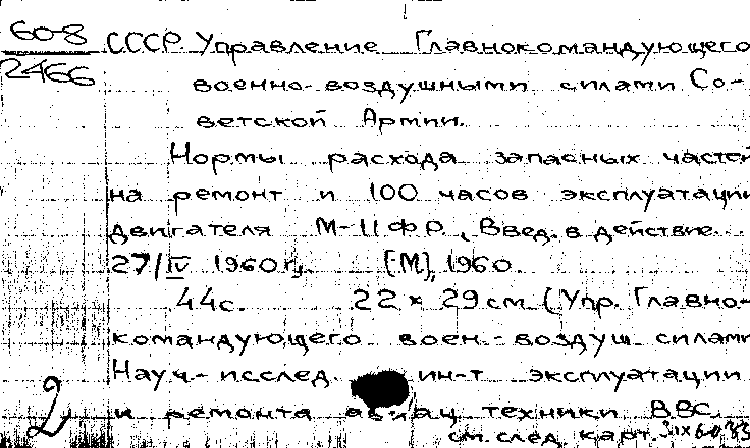 60-8
2466
СССР Управление Главнокомандующего
военно-воздушными силами Со-
ветской Армии.
Нормы расхода запасных частей
на ремонт и 100 часов эксплуатации
двигателя М-11ФР, Введ. в действие
27/IV 1960 г. [М], 1960.
44 с. 22 × 29 см (Упр. Главно-
командующего воен.-воздуш. силами
Науч.-исслед. ин-т эксплуатации
и ремонта авиац техники ВВС.
2 см. след. карт.